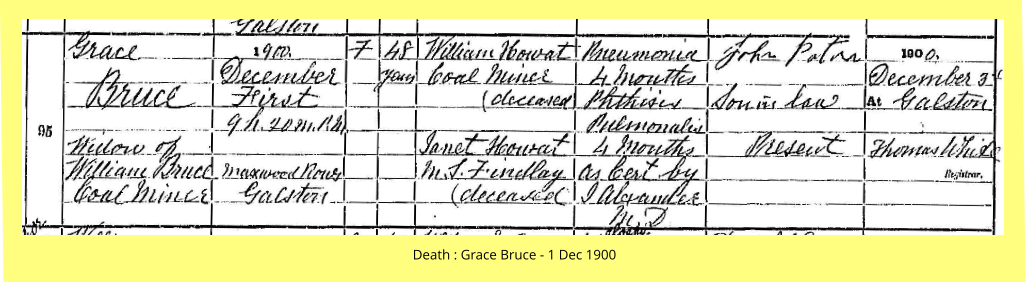 Galston
95
Grace
Bruce
Widow of
William Bruce
Coal Miner
1900.
December
First
9 h. 20 m. P.M.
Maxwood Rows
Galston
F
48
years
William Howat
Coal Miner
(deceased)
Janet Howat
M. S. Findlay
(deceased)
Pneumonia
4 Months
Phthisis
Pulmonalis
4 Months
As Cert by
J Alexander
M. D
John Paton
Son in law
Present
1900.
December 3d
At Galston
Thomas White
Registrar.
Death : Grace Bruce - 1 Dec 1900